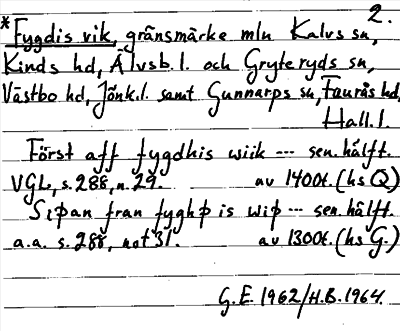 2.
*Fygdis vik, gränsmärke mln Kalvs sn,
Kinds hd, Älvsb.l. och Gryteryds sn,
Västbo hd, Jönk.l. samt Gunnarps sn, Faurås hd,
Hall.l.
Först aff fygdhis wiik --- sen. hälft.
VGL, s. 288, n. 29. av 1400t. (hs Q)
Siþan fran fyghþ is wiþ --- sen. hälft.
a.a. s. 288, not 31. av 1300t. (hs G.)
G.E. 1962/H.B. 1964.